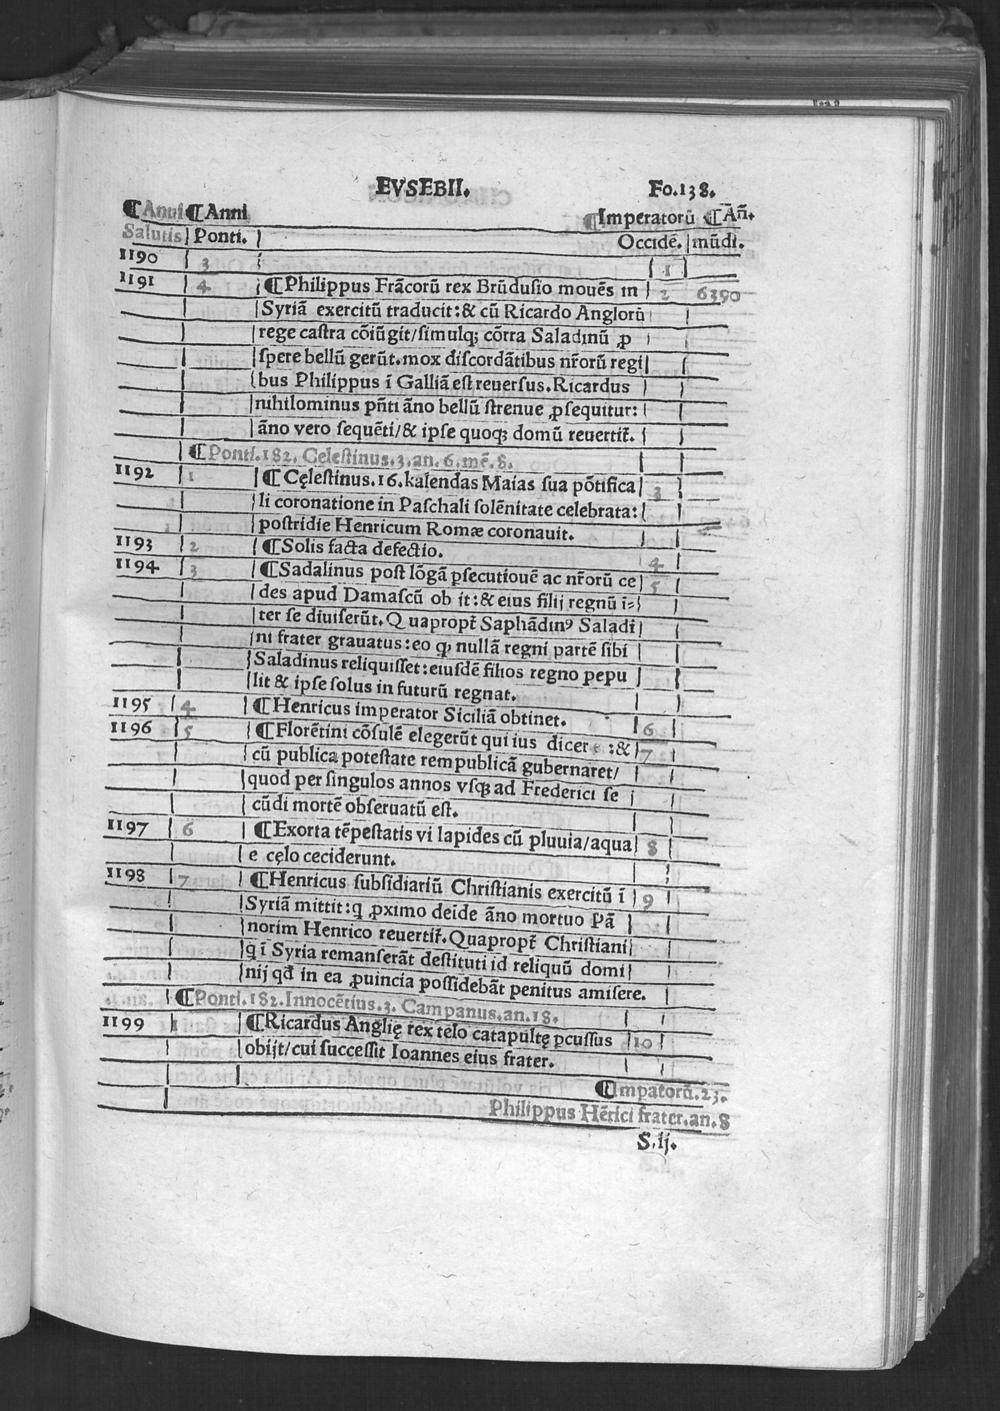 EVSEBII. Fo.138.
¶Anni ¶Anni ¶Imperatorū ¶Añ.
Salutis Ponti. Occidē. mūdi.
1190 3 1
1191 4 ¶Philippus Frācorū rex Brūdusio mouēs in 2 6390
Syriā exercitū traducit:& cū Ricardo Anglorū
rege castra cōiūgit/simulq; cōrra Saladinū ꝓ
spere bellū gerūt.mox discordātibus nr̄orū regi
bus Philippus ī Galliā est reuersus.Ricardus
nihilominus pñti āno bellū strenue ꝓsequitur:
āno vero sequēti/& ipse quoq; domū reuertit̄.
¶Ponti.182. Celestinus.3.an.6.mē.8.
1192 1 ¶Cęlestinus.16.kalendas Maias sua pōtifica 3
li coronatione in Paschali solēnitate celebrata:
postridie Henricum Romæ coronauit.
1193 2 ¶Solis facta defectio. 4
1194 3 ¶Sadalinus post lōgā ꝑsecutiouē ac nr̄orū ce 5
des apud Damascū ob ijt:& eius filij regnū ī-
ter se diuiserūt.Quapropt̄ Saphādinꝰ Saladī
ni frater grauatus:eo ꝙ nullā regni partē sibi
Saladinus reliquisset:eiusdē filios regno pepu
lit & ipse solus in futurū regnat.
1195 4 ¶Henricus imperator Siciliā obtinet. 6
1196 5 ¶Florētini cōsulē elegerūt qui ius dicere:& 7
cū publica potestate rempublicā gubernaret/
quod per singulos annos vsq; ad Frederici se
cūdi mortē obseruatū est.
1197 6 ¶Exorta tēpestatis vi lapides cū pluuia/aqua 8
e cęlo ceciderunt.
1198 7 ¶Henricus subsidiariū Christianis exercitū ī 9
Syriā mittit:q ꝓximo deide āno mortuo Pā
norim Henrico reuertit̄.Quapropt̄ Christiani
q ī Syria remanserāt destituti id reliquū domi
nij qđ in ea ꝓuincia possidebāt penitus amisere.
¶Ponti.182.Innocētius.3. Campanus.an.18.
1199 1 ¶Ricardus Anglię rex telo catapultę ꝑcussus 10
obijt/cui successit Ioannes eius frater.
¶Impatorū.23.
Philippus Hērici frater.an.8
S.ij.